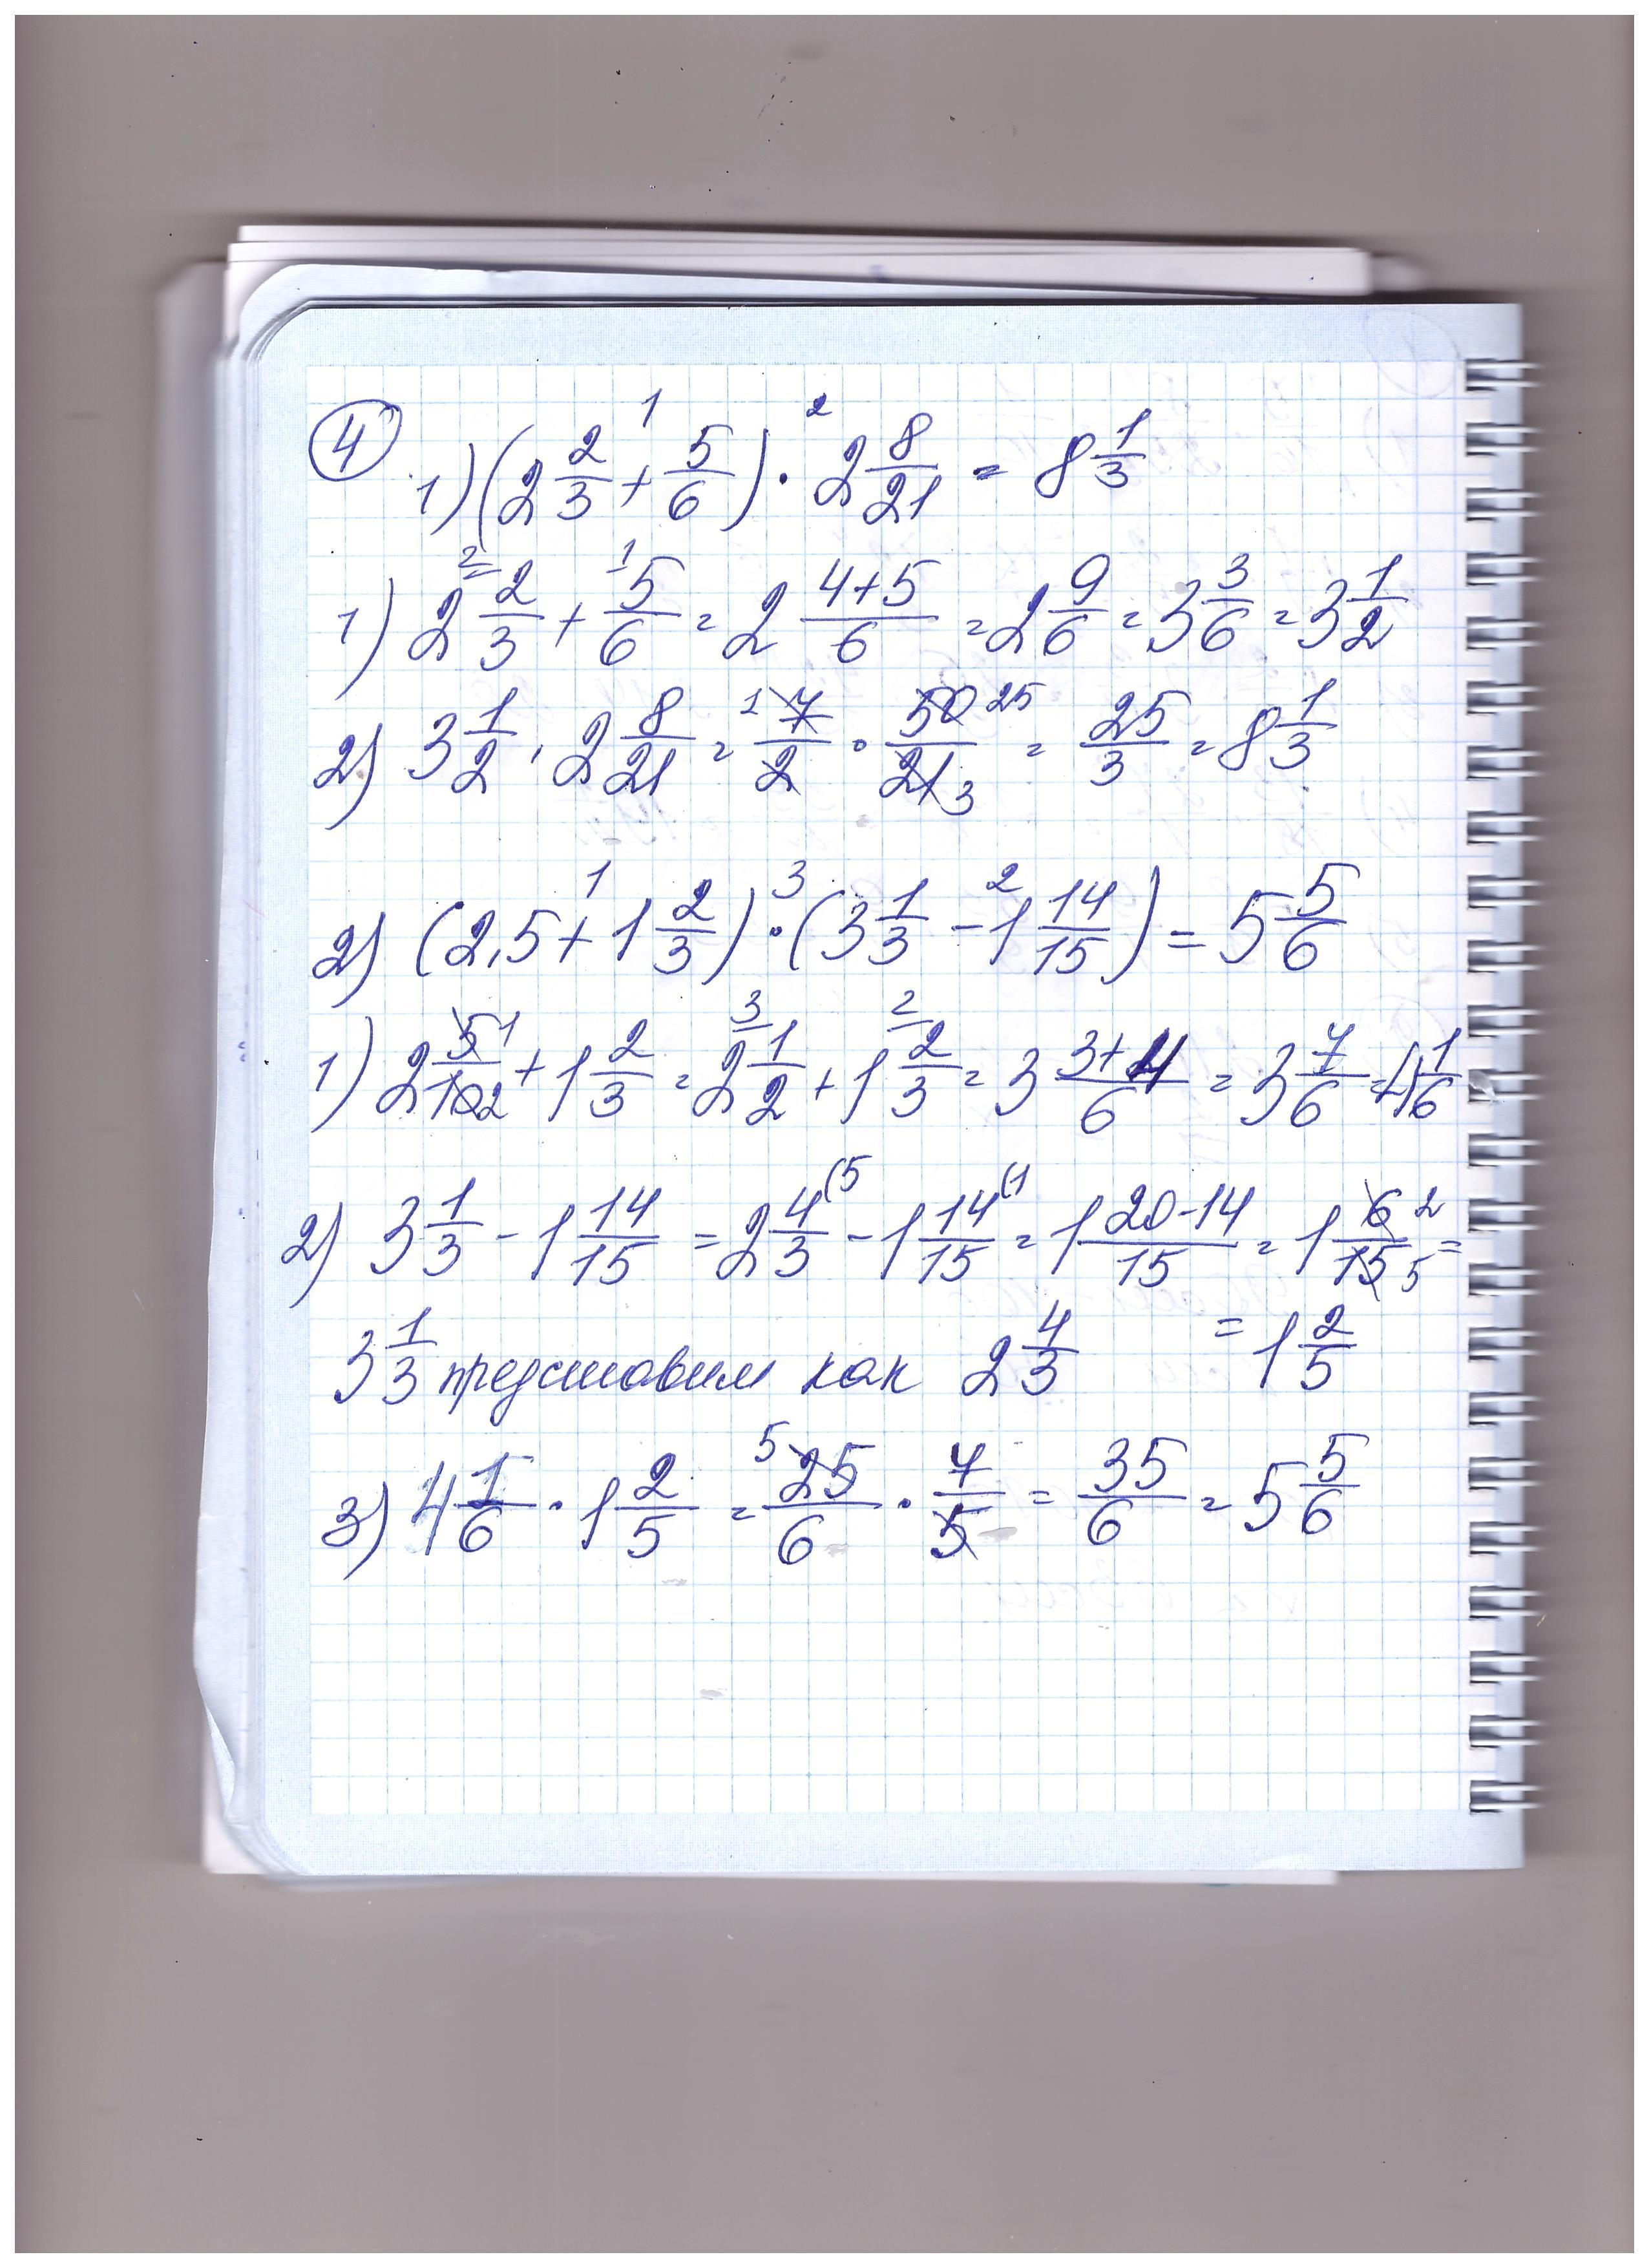 ④ 1) (2 2/3 + 5/6) · 2 8/21 = 8 1/3
1) 2 2/3 + 5/6 = 2 (4+5)/6 = 2 9/6 = 3 3/6 = 3 1/2
2) 3 1/2 · 2 8/21 = 7/2 · 50/21 = 25/3 = 8 1/3
2) (2,5 + 1 2/3) · (3 1/3 - 1 14/15) = 5 5/6
1) 2 5/10 + 1 2/3 = 2 1/2 + 1 2/3 = 3 (3+4)/6 = 3 7/6 = 4 1/6
2) 3 1/3 - 1 14/15 = 2 4/3 - 1 14/15 = 1 (20-14)/15 = 1 6/15 =
3 1/3 представим как 2 4/3 = 1 2/5
3) 4 1/6 · 1 2/5 = 25/6 · 7/5 = 35/6 = 5 5/6